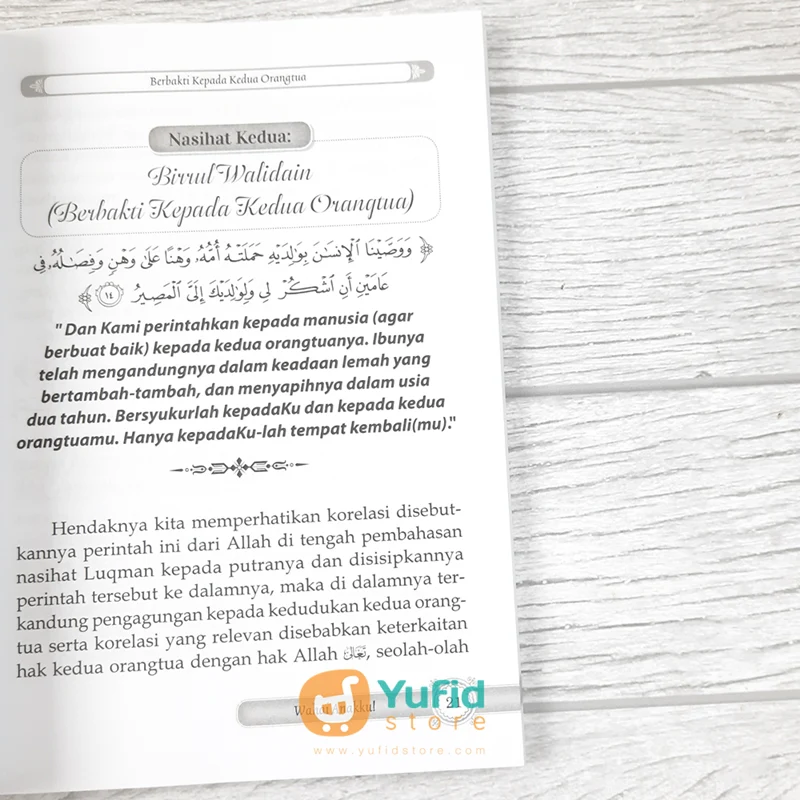 Berbakti Kepada Kedua Orangtua
Nasihat Kedua:
Birrul Walidain
(Berbakti Kepada Kedua Orangtua)
﴿ وَوَصَّيْنَا ٱلْإِنسَٰنَ بِوَٰلِدَيْهِ حَمَلَتْهُ أُمُّهُۥ وَهْنًا عَلَىٰ وَهْنٍ وَفِصَٰلُهُۥ فِى
عَامَيْنِ أَنِ ٱشْكُرْ لِى وَلِوَٰلِدَيْكَ إِلَىَّ ٱلْمَصِيرُ ١٤ ﴾
" Dan Kami perintahkan kepada manusia (agar
berbuat baik) kepada kedua orangtuanya. Ibunya
telah mengandungnya dalam keadaan lemah yang
bertambah-tambah, dan menyapihnya dalam usia
dua tahun. Bersyukurlah kepadaKu dan kepada kedua
orangtuamu. Hanya kepadaKu-lah tempat kembali(mu)."
Hendaknya kita memperhatikan korelasi disebut-
kannya perintah ini dari Allah di tengah pembahasan
nasihat Luqman kepada putranya dan disisipkannya
perintah tersebut ke dalamnya, maka di dalamnya ter-
kandung pengagungan kepada kedudukan kedua orang-
tua serta korelasi yang relevan disebabkan keterkaitan
hak kedua orangtua dengan hak Allah تَعَالَى, seolah-olah
Wahai Anakku!
21
Yufid
store
www.yufidstore.com